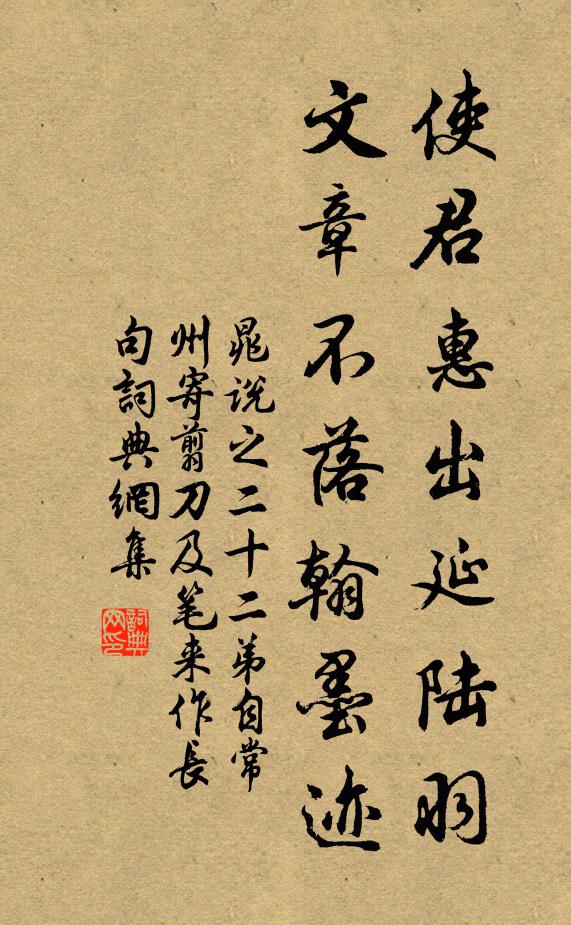 使君惠出延陆羽
文章不落翰墨迹
晁说之二十二弟自常
州寄剪刀及笔来作長
句詞典網集
詞典網印